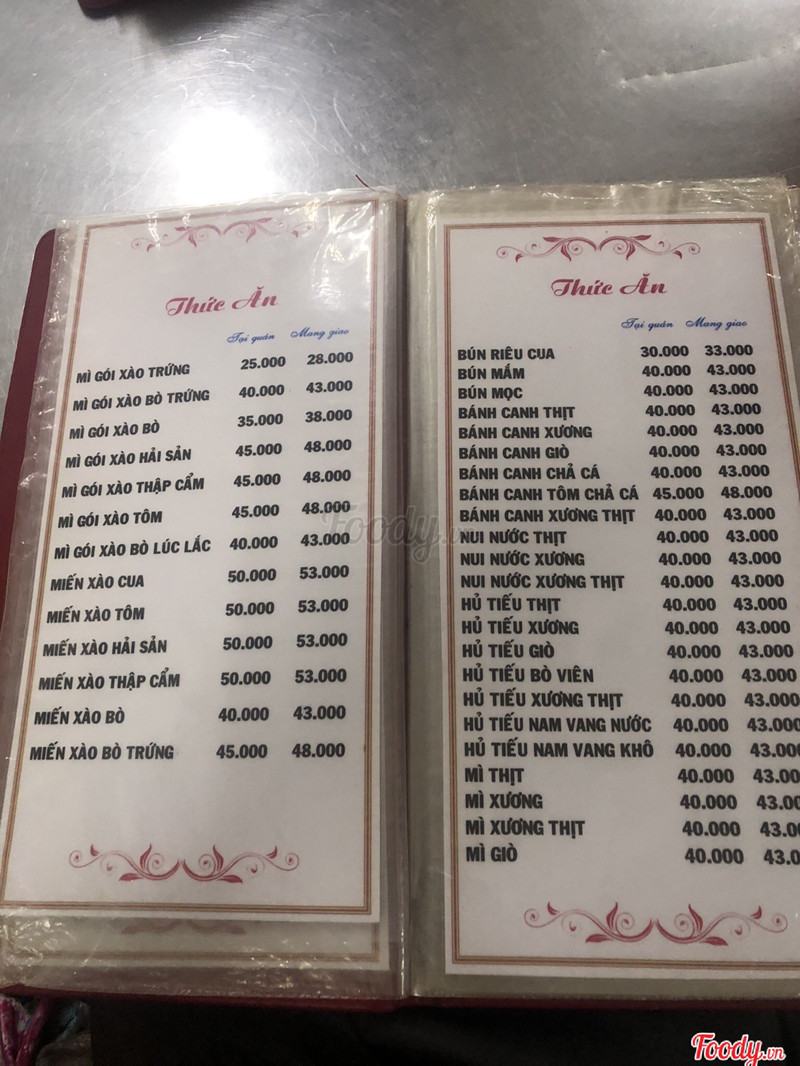 Thức Ăn
Tại quán Mang giao
MÌ GÓI XÀO TRỨNG 25.000 28.000
MÌ GÓI XÀO BÒ TRỨNG 40.000 43.000
MÌ GÓI XÀO BÒ 35.000 38.000
MÌ GÓI XÀO HẢI SẢN 45.000 48.000
MÌ GÓI XÀO THẬP CẨM 45.000 48.000
MÌ GÓI XÀO TÔM 45.000 48.000
MÌ GÓI XÀO BÒ LÚC LẮC 40.000 43.000
MIẾN XÀO CUA 50.000 53.000
MIẾN XÀO TÔM 50.000 53.000
MIẾN XÀO HẢI SẢN 50.000 53.000
MIẾN XÀO THẬP CẨM 50.000 53.000
MIẾN XÀO BÒ 40.000 43.000
MIẾN XÀO BÒ TRỨNG 45.000 48.000
Thức Ăn
Tại quán Mang giao
BÚN RIÊU CUA 30.000 33.000
BÚN MẮM 40.000 43.000
BÚN MỌC 40.000 43.000
BÁNH CANH THỊT 40.000 43.000
BÁNH CANH XƯƠNG 40.000 43.000
BÁNH CANH GIÒ 40.000 43.000
BÁNH CANH CHẢ CÁ 40.000 43.000
BÁNH CANH TÔM CHẢ CÁ 45.000 48.000
BÁNH CANH XƯƠNG THỊT 40.000 43.000
NUI NƯỚC THỊT 40.000 43.000
NUI NƯỚC XƯƠNG 40.000 43.000
NUI NƯỚC XƯƠNG THỊT 40.000 43.000
HỦ TIẾU THỊT 40.000 43.000
HỦ TIẾU XƯƠNG 40.000 43.000
HỦ TIẾU GIÒ 40.000 43.000
HỦ TIẾU BÒ VIÊN 40.000 43.000
HỦ TIẾU XƯƠNG THỊT 40.000 43.000
HỦ TIẾU NAM VANG NƯỚC 40.000 43.000
HỦ TIẾU NAM VANG KHÔ 40.000 43.000
MÌ THỊT 40.000 43.00
MÌ XƯƠNG 40.000 43.00
MÌ XƯƠNG THỊT 40.000 43.00
MÌ GIÒ 40.000 43.00
Foody.vn
Foody.vn